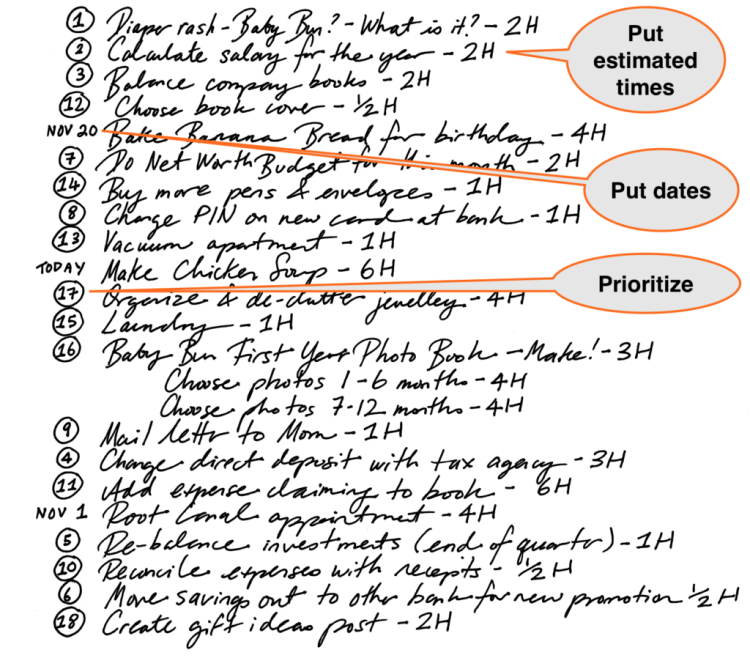 ① Diaper rash - Baby Bun? - What is it? - 2H
② Calculate salary for the year - 2H
③ Balance company books - 2H
⑫ Choose book cover - ½H
NOV 20 Bake Banana Bread for birthday - 4H
⑦ Do Net Worth Budget for this month - 2H
⑭ Buy more pens & envelopes - 1H
⑧ Change PIN on new card at bank - 1H
⑬ Vacuum apartment - 1H
TODAY Make Chicken Soup - 6H
⑰ Organize & de-clutter jewelley - 4H
⑮ Laundry - 1H
⑯ Baby Bun First Year Photo Book - Make! - 3H
Choose photos 1-6 months - 4H
Choose photos 7-12 months - 4H
⑨ Mail letter to Mom - 1H
④ Change direct deposit with tax agency - 3H
⑪ Add expense claiming to book - 6H
NOV 1 Root Canal appointment - 4H
⑤ Re-balance investments (end of quarter) - 1H
⑩ Reconcile expenses with receipts - ½H
⑥ Move savings out to other bank for new promotion ½H
⑱ Create gift ideas post - 2H
Put
estimated
times
Put dates
Prioritize